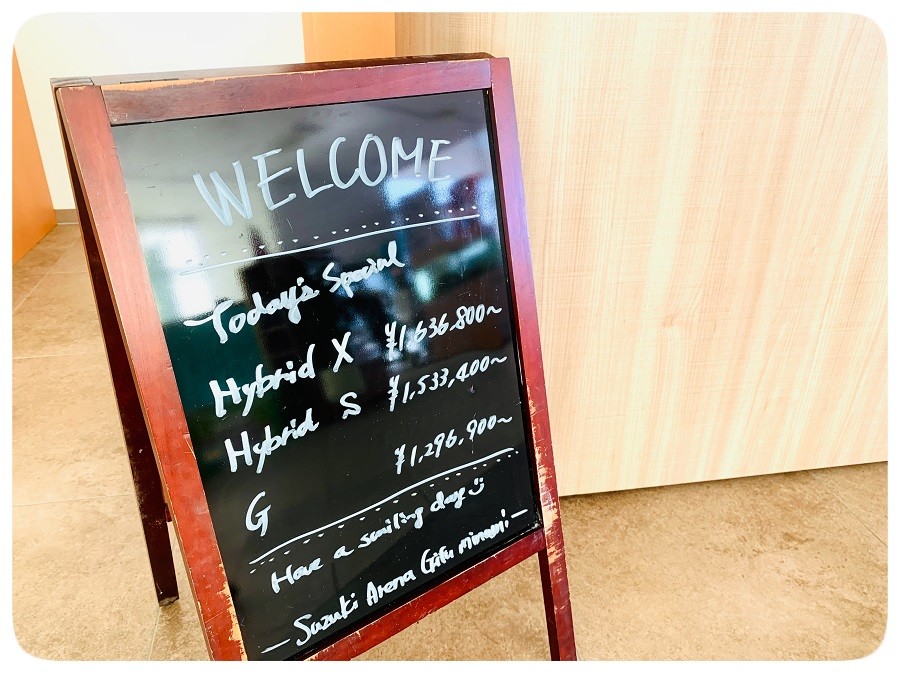 WELCOME
Today's Special
Hybrid X ¥1,636,800~
Hybrid S ¥1,533,400~
G ¥1,296,900~
Have a smiling day
— Suzuki Arena Gifu minami —